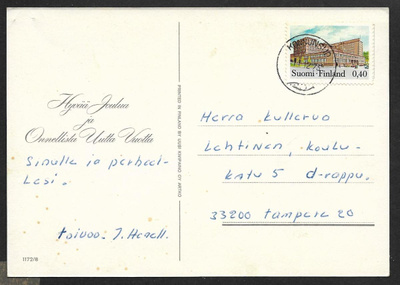 Suomi-Finland
0,40
Hyvää Joulua
ja
Onnellista Uutta Vuotta
Sinulle ja perheel-
lesi.
toivoo
1172/6
Herra Kullervo
Lehtinen, Koulu-
katu 5 d-rappu.
33200 Tampere 20